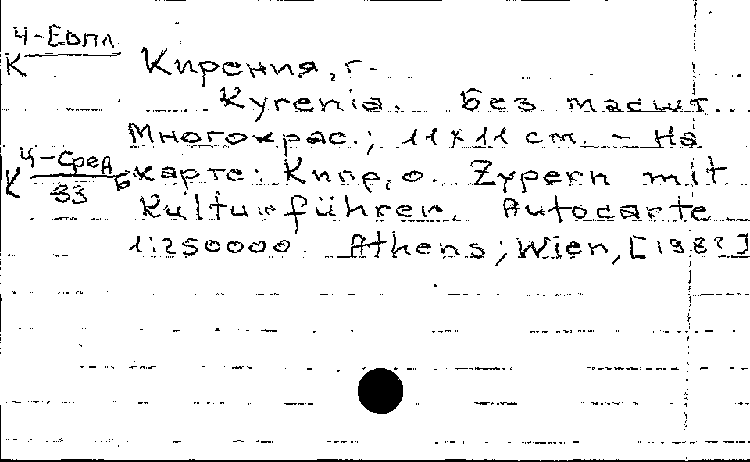 К 4-Европ
Кирения, г.
Kyrenia. Без масшт.
Многокрас.; 11х11 см. – На
К 4-Сред/33 Б
карте: Кипр, о. Zypern mit
Kulturführer. Autocarte
1:250000. Athens; Wien, [198?]